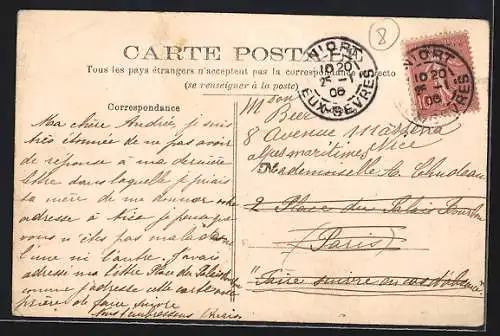 8
CARTE POSTALE
Tous les pays étrangers n'acceptent pas la correspondance au recto
(se renseigner à la poste)
NIORT
10 20
25 -1
06
DEUX-SÈVRES
NIORT
10 20
25 -1
06
SÈVRES
Correspondance
Ma chère Andrée, je suis
très étonnée de ne pas avoir
de réponse à ma dernière
lettre dans laquelle je priais
ta mère de me donner votre
adresse à Nice je pense que
vous n'êtes pas malades
l'une ni l'autre. J'avais
adressé ma lettre Place du Palais Bourbon
comme j'adresse cette carte avec
prière de faire suivre
8 Avenue
Alpes maritimes Nice
Mademoiselle A.
2 Place du Palais Bourbon
(Paris)
"Faire suivre en cas d'absence"